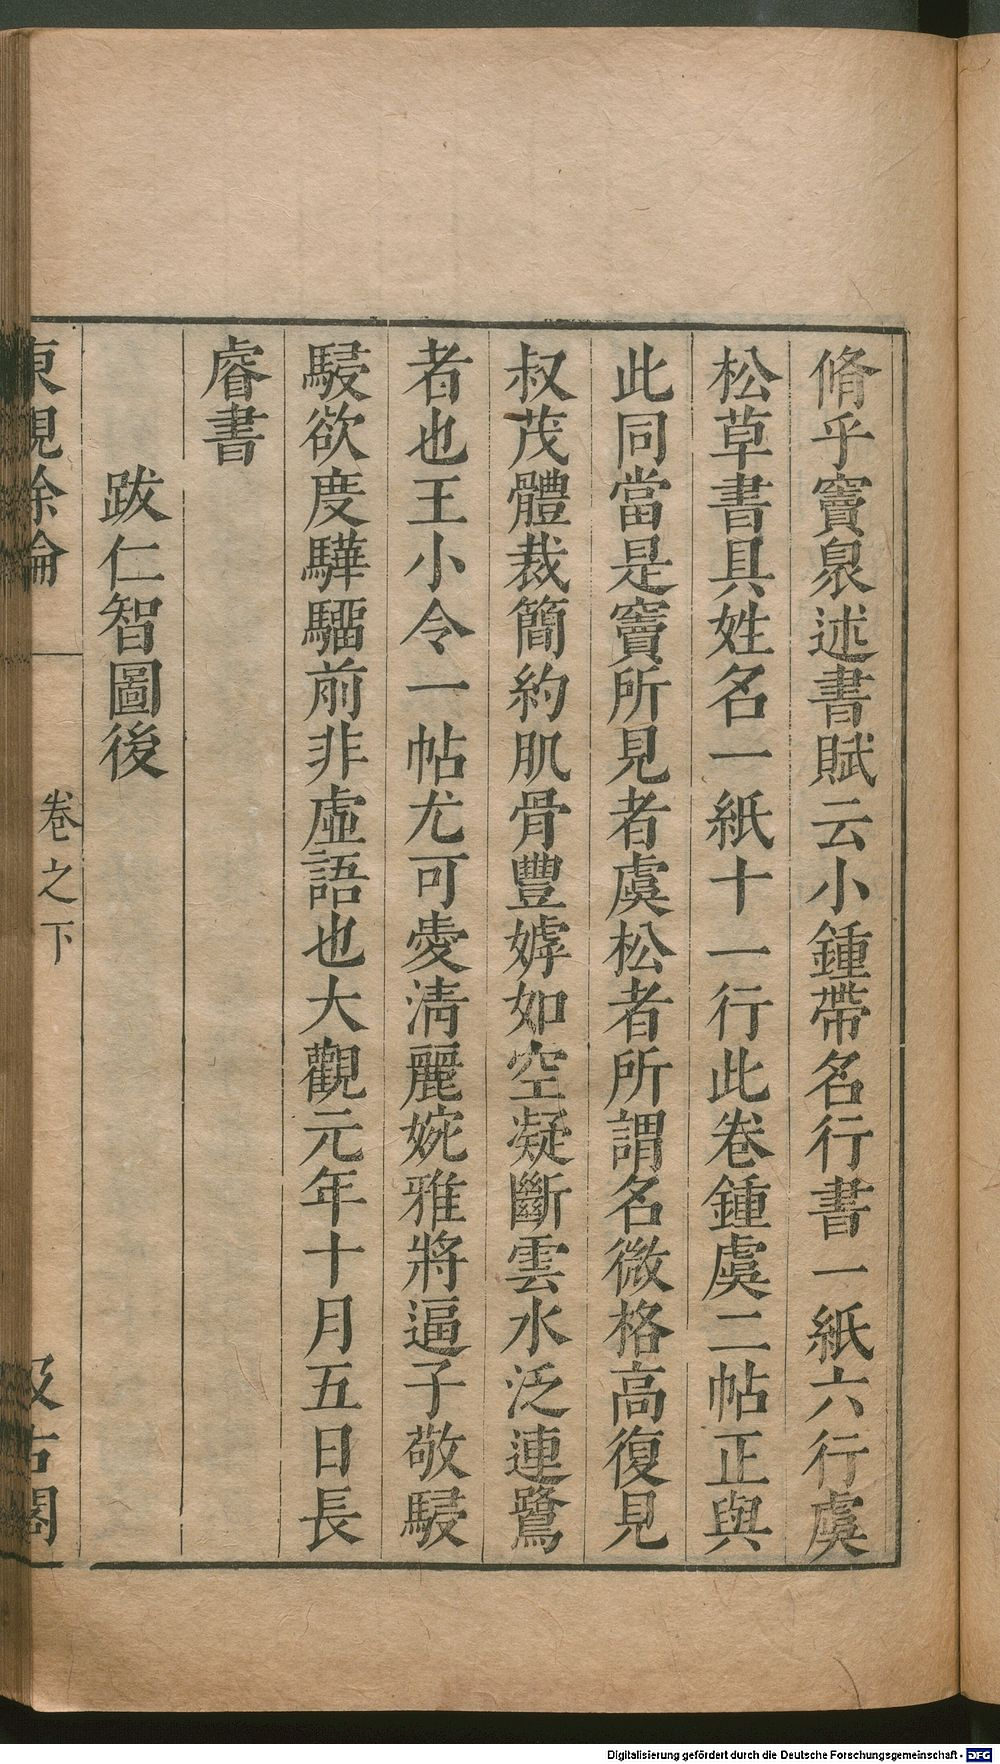 脩乎竇臮述書賦云小鍾帶名行書一紙六行虞
松草書具姓名一紙十一行此卷鍾虞二帖正與
此同當是竇所見者虞松者所謂名微格高復見
叔茂體裁簡約肌骨豐嫮如空凝斷雲水泛連鷺
者也王小令一帖尤可愛淸麗婉雅將逼子敬駸
駸欲度驊騮前非虛語也大觀元年十月五日長
睿書
跋仁智圖後
東觀餘論
卷之下
汲古閣
Digitalisierung gefördert durch die Deutsche Forschungsgemeinschaft - DFG